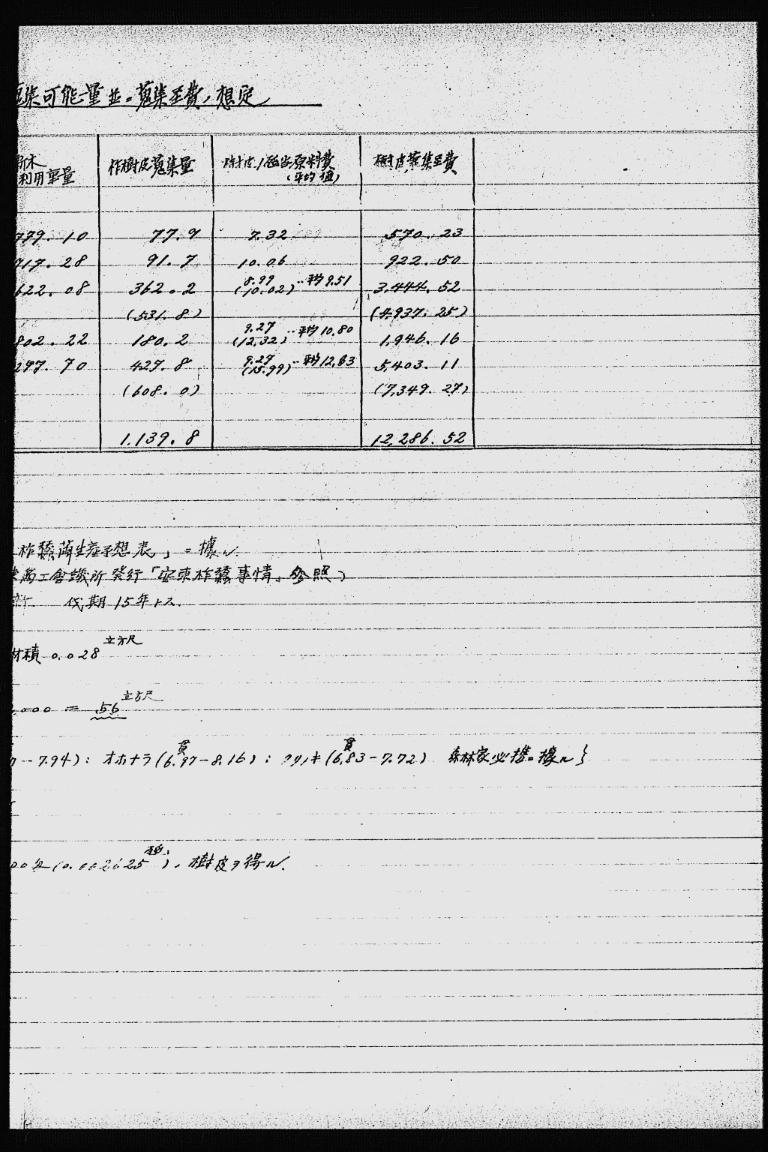 蒐集可能量並ニ蒐集経費ノ想定
利用車量 柞樹皮蒐集量 樹皮1瓲当原料費(平均値) 樹皮蒐集経費
779.10 77.9 7.32 570.23
917.28 91.7 10.06 922.50
622.08 362.2 8.99(10.02)…平均9.51 3,444.52
(531.8) (4,937.25)
802.22 180.2 9.27(12.32)…平均10.80 1,946.16
297.70 427.8 9.29(15.99)…平均12.63 5,403.11
(608.0) (7,349.27)
1,139.8 12,286.52
柞蚕繭生産予想表」ニ據ル
商工会議所発行「安東柞蚕事情」参照)
伐期15年トス.
材積 0.028立方尺
000 = 56立方尺
-7.94): オホナラ(6.97-8.16)貫: クヌギ(6.83-7.72)貫 森林家必携ニ據ル}
(0.002625瓲)ノ樹皮ヲ得ル.